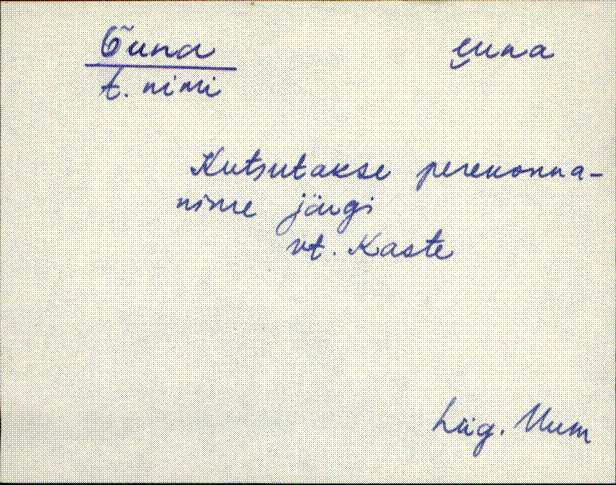 Õuna e̮una
t. nimi
Kutsutakse perekonna-
nime järgi
vt. Kaste
Lüg. Uum